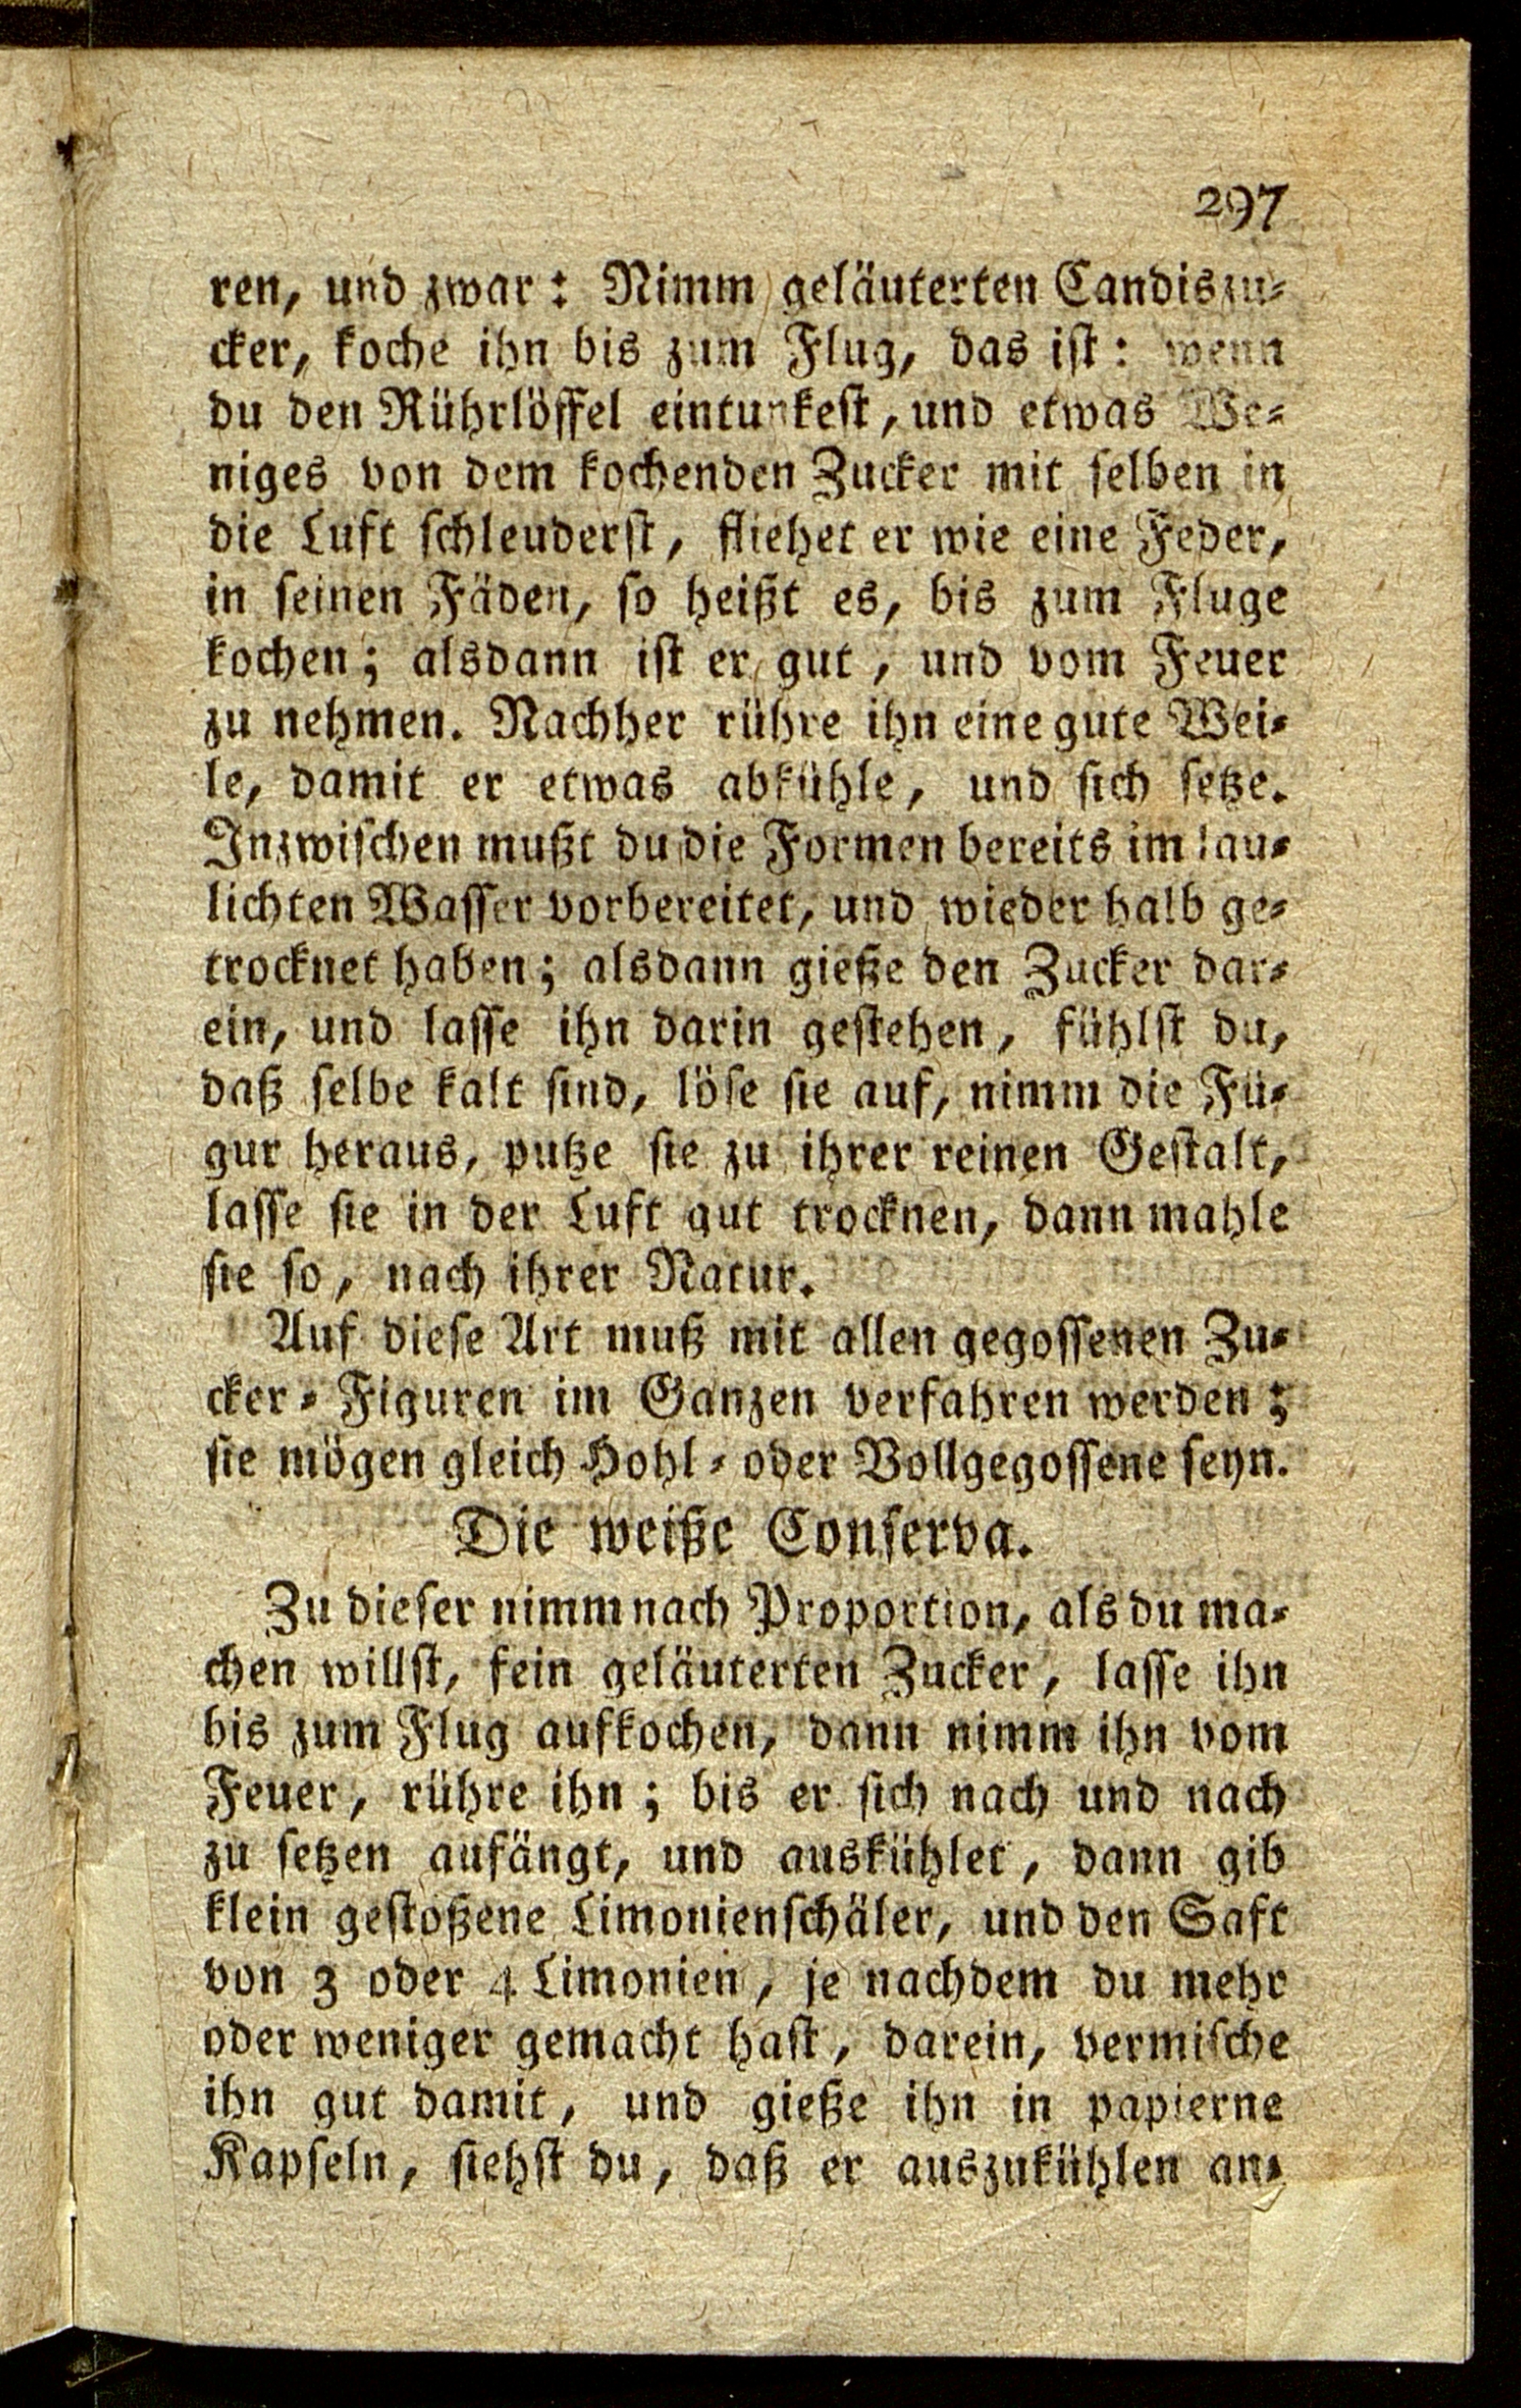 297
ren, und zwar: Nimm geläuterten Candiszu-
cker, koche ihn bis zum Flug, das ist: wenn
du den Rührlöffel eintunkest, und etwas We-
niges von dem kochenden Zucker mit selben in
die Luft schleuderst, fliehet er wie eine Feder,
in seinen Fäden, so heißt es, bis zum Fluge
kochen; alsdann ist er gut, und vom Feuer
zu nehmen. Nachher rühre ihn eine gute Wei-
le, damit er etwas abkühle, und sich setze.
Inzwischen mußt du die Formen bereits im lau-
lichten Wasser vorbereitet, und wieder halb ge-
trocknet haben; alsdann gieße den Zucker dar-
ein, und lasse ihn darin gestehen, fühlst du,
daß selbe kalt sind, löse sie auf, nimm die Fü-
gur heraus, putze sie zu ihrer reinen Gestalt,
lasse sie in der Luft gut trocknen, dann mahle
sie so, nach ihrer Natur.
Auf diese Art muß mit allen gegossenen Zu-
cker-Figuren im Ganzen verfahren werden;
sie mögen gleich Hohl- oder Vollgegossene seyn.
Die weiße Conserva.
Zu dieser nimm nach Proportion, als du ma-
chen willst, fein geläuterten Zucker, lasse ihn
bis zum Flug aufkochen, dann nimm ihn vom
Feuer, rühre ihn; bis er sich nach und nach
zu setzen aufängt, und auskühlet, dann gib
klein gestoßene Limonienschäler, und den Saft
von 3 oder 4 Limonien, je nachdem du mehr
oder weniger gemacht hast, darein, vermische
ihn gut damit, und gieße ihn in papierne
Kapseln, siehst du, daß er auszukühlen an-